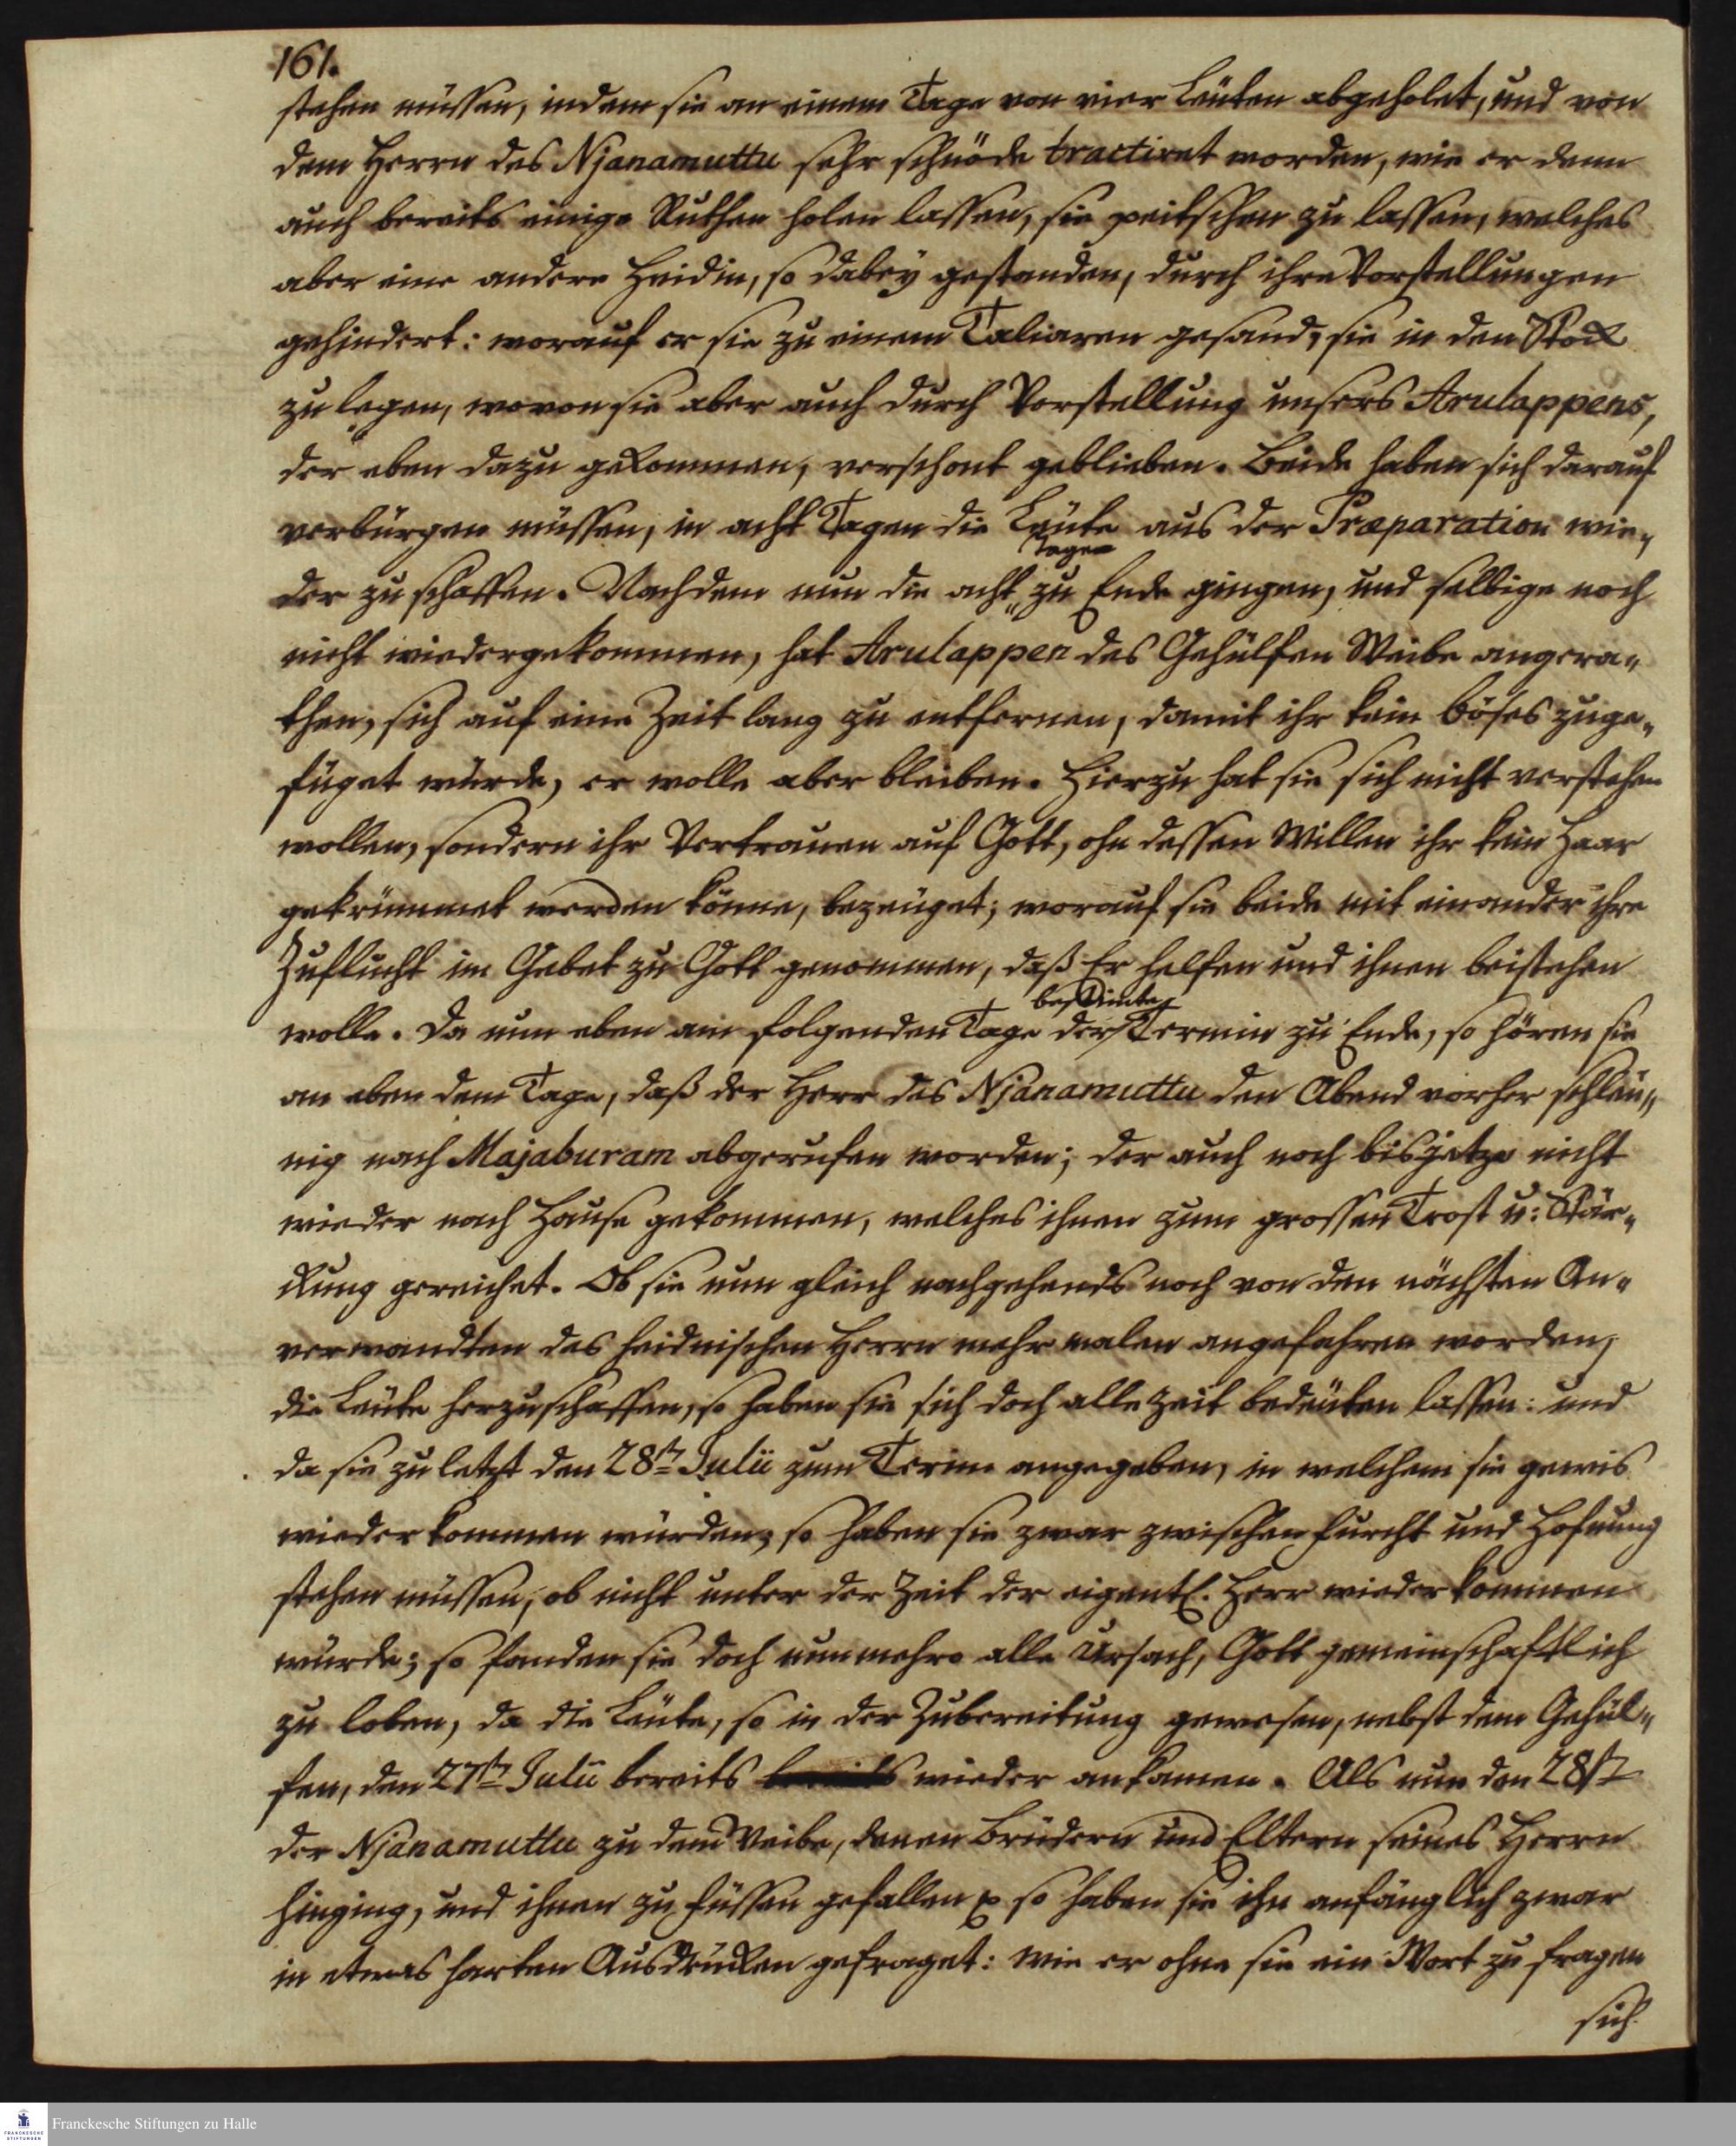 161.
stehen müssen, indem sie an einem Tage von vier Leüten abgeholet, und von
dem Herrn des Njanamuttu sehr schnöde tractiret worden, wie er denn
auch bereits einige Ruthen holen lassen, sie peitschen zu lassen, welches
aber eine andere Heidin, so dabey gestanden, durch ihre Vorstellungen
gehindert: worauf er sie zu einem Taliaren gesand, sie in den Stock
zu legen, wovon sie aber auch durch Vorstellung unsers Arulappens,
der eben dazu gekommen, verschont geblieben. Beide haben sich darauf
verbürgen müssen, in acht Tagen die Leüte aus der Præparation wie„
Tage
der zu schaffen. Nachdem nun die acht„ zu Ende gingen, und selbige noch
nicht wiedergekommen, hat Arulappen des Gehülfen Weibe angera„
then, sich auf eine Zeit lang zu entfernen, damit ihr kein böses zuge„
füget würde, er wolle aber bleiben. Hierzu hat sie sich nicht verstehen
wollen, sondern ihr Vertrauen auf Gott, ohn dessen Willen ihr kein Haar
gekrümmet werden könne, bezeüget; worauf sie beide mit einander ihre
Zuflucht im Gebet zu Gott genommen, daß Er helfen und ihnen beistehen
bestimte
wolle. Da nun eben am folgenden Tage der Termin zu Ende, so hören sie
an eben dem Tage, daß der Herr des Njanamuttu den Abend vorher schleü„
nig nach Majaburam abgerufen worden; der auch noch bis jetzo nicht
wieder nach Hause gekommen, welches ihnen zum grossen Trost u: Stär„
ckung gereichet. Ob sie nun gleich nachgehends noch von den nächsten An„
verwandten des heidnischen Herrn mehr malen angefahren worden,
die Leüte herzuschaffen, so haben sie sich doch alle Zeit bedeüten lassen: und
da sie zuletzt den 28st Julii zum Termin angegeben, in welchem sie gewis
wieder kommen würden, so haben sie zwar zwischen Furcht und Hofnung
stehen müssen, ob nicht unter der Zeit der eigentl. Herr wieder kommen
würde; so fanden sie doch nunmehro alle Ursach, Gott gemeinschaftlich
zu loben, da die Leüte, so in der Zubereitung gewesen, nebst dem Gehül„
fen, den 27st Julii bereits wieder ankamen. Als nun den 28st
der Njanamuttu zu dem Weibe, denen Brüdern und Eltern seines Herrn
hinging, und ihnen zu Füssen gefallen so haben sie ihn anfänglich zwar
in etwas harten Ausdrücken gefraget: wie er ohne sie ein Wort zu fragen
sich
Franckesche Stiftungen zu Halle